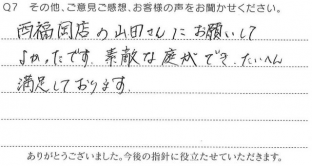 Q7 その他、ご意見ご感想、お客様の声をお聞かせください。
西福岡店の山田さんにお願いして
よかったです。素敵な庭ができ、たいへん
満足しております。
ありがとうございました。今後の指針に役立たせていただきます。